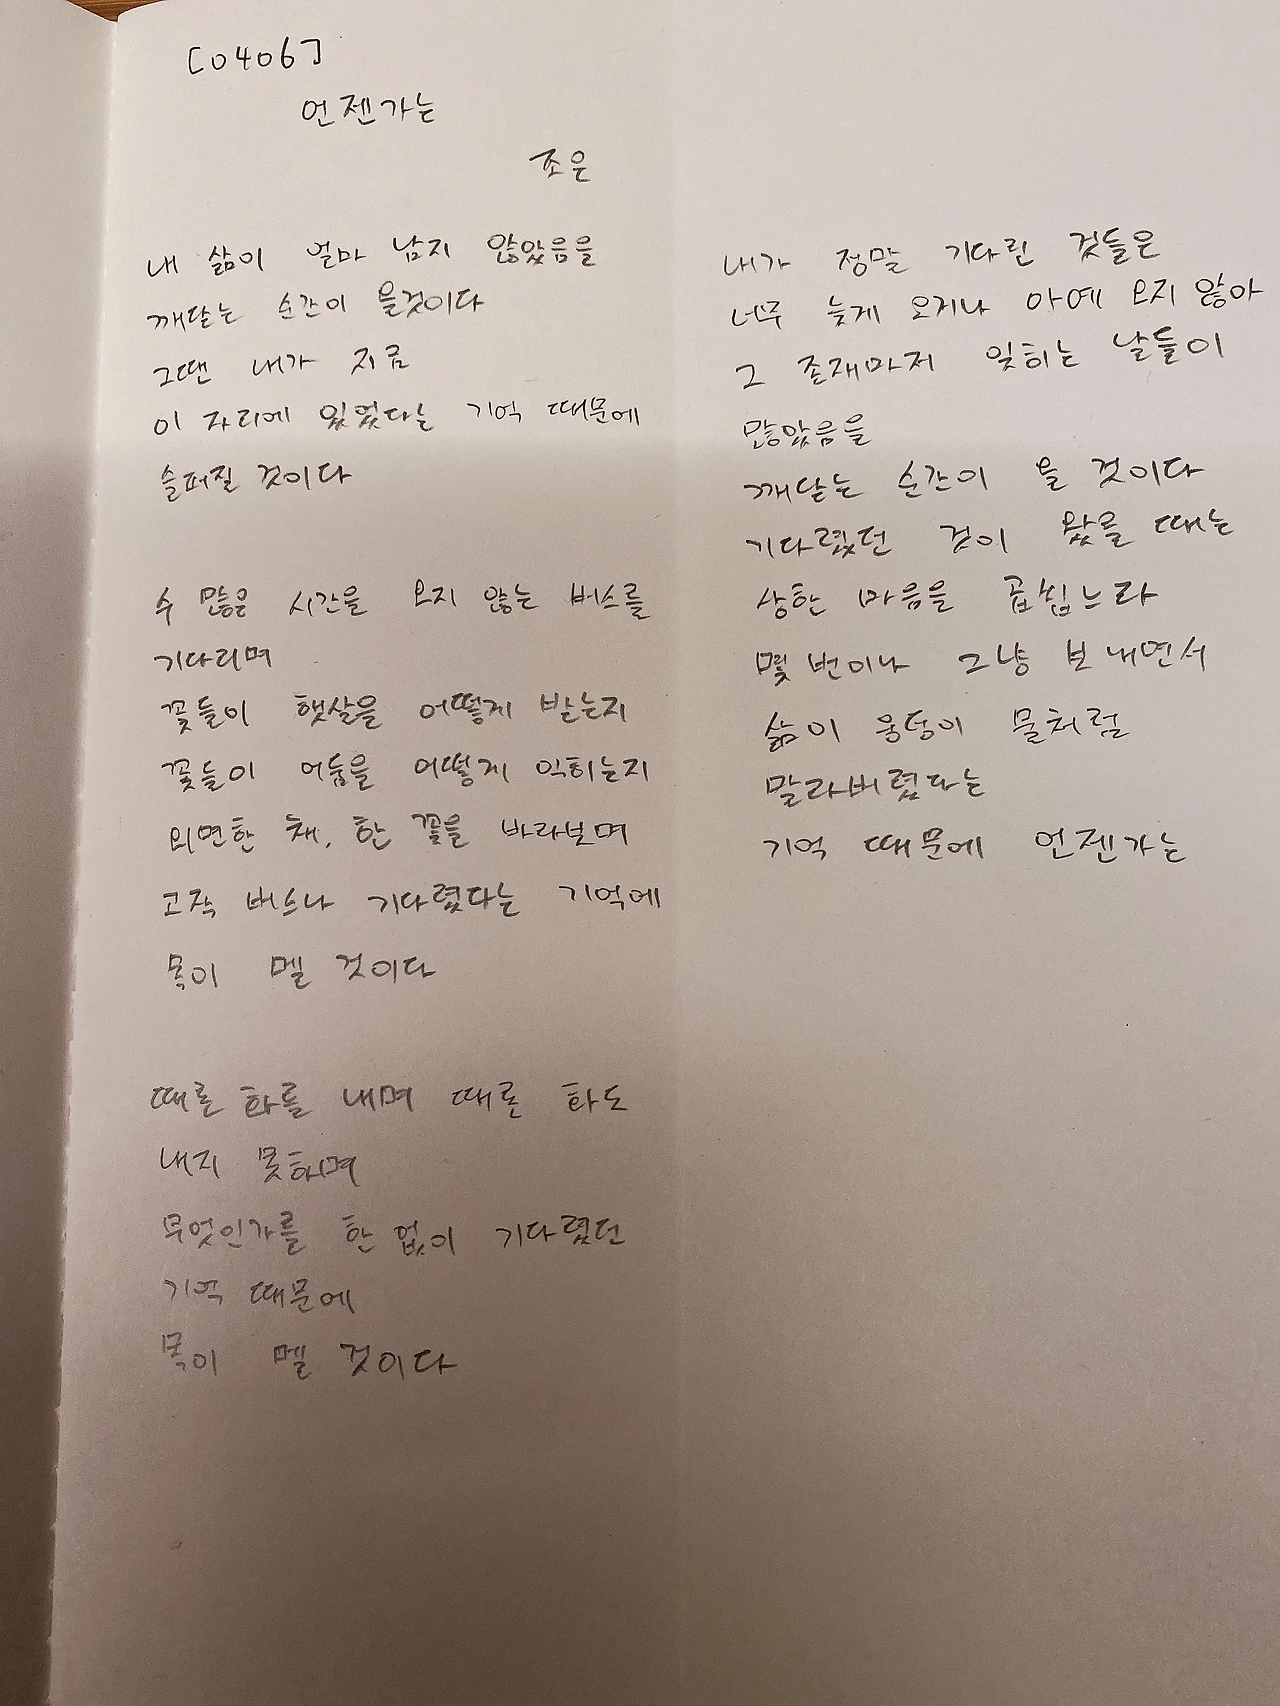 [0406]
언젠가는
조은
내 삶이 얼마 남지 않았음을
깨닫는 순간이 올것이다
그땐 내가 지금
이 자리에 있었다는 기억 때문에
슬퍼질 것이다
수 많은 시간을 오지 않는 버스를
기다리며
꽃들이 햇살을 어떻게 받는지
꽃들이 어둠을 어떻게 익히는지
외면한 채, 한 곳을 바라보며
고작 버스나 기다렸다는 기억에
목이 멜 것이다
때론 화를 내며 때론 화도
내지 못하며
무엇인가를 한없이 기다렸던
기억 때문에
목이 멜 것이다
내가 정말 기다린 것들은
너무 늦게 오거나 아예 오지 않아
그 존재마저 잊히는 날들이
많았음을
깨닫는 순간이 올 것이다
기다렸던 것이 왔을 때는
상한 마음을 곱씹느라
몇 번이나 그냥 보내면서
삶이 웅덩이 물처럼
말라버렸다는
기억 때문에 언젠가는